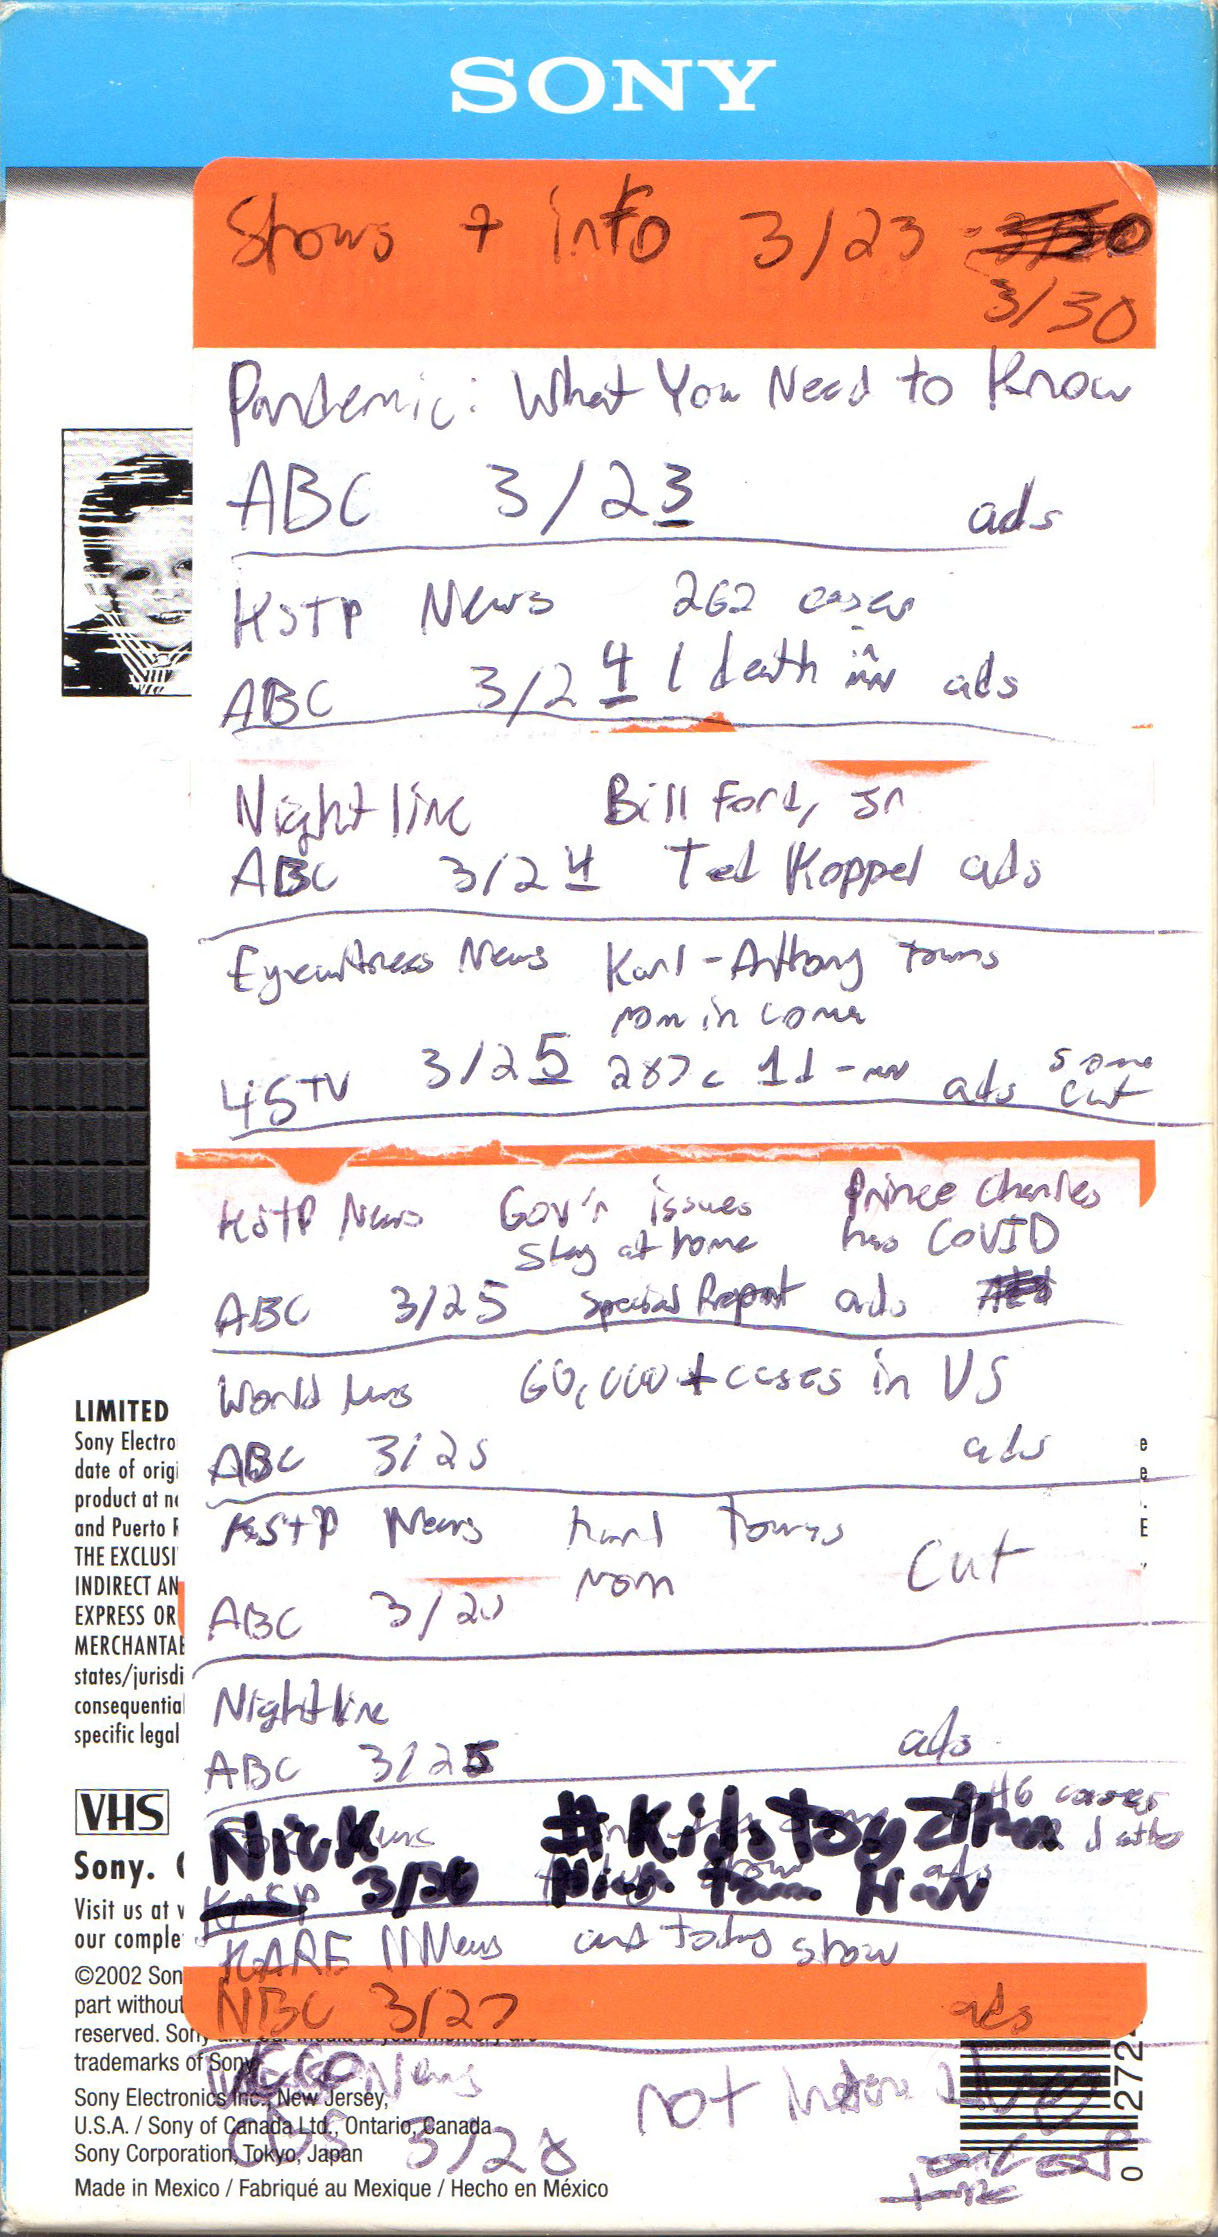 SONY
Shows + info 3/23 -
3/30
Pandemic: What You Need to Know
ABC 3/23 ads
KSTP News 262 cases
ABC 3/24 1 death in MN ads
Nightline Bill Ford, Jr
ABC 3/24 Ted Koppel ads
Eyewitness News Karl-Anthony Towns
mom in coma
45TV 3/25 287c 1d - MN ads some
cut
KSTP News Gov'r issues Prince Charles
stay at home has COVID
ABC 3/25 Special Report ads
World News 60,000+ cases in US
ABC 3/25 ads
KSTP News Karl Towns
Mom cut
ABC
Nightline
ABC 3/25 ads
cases
Nick #KidsTogether
3/30
KARE 11 News and today show
NBC 3/27 ads
News not
CBS 3/28
LIMITED
Sony Electro
date of origi
product at n
and Puerto
THE EXCLUSI
INDIRECT AN
EXPRESS OR
MERCHANTA
states/jurisdi
consequential
specific legal
VHS
Sony.
Visit us at
our comple
©2002 Son
part without
reserved. Sony
trademarks of Sony
Sony Electronics Inc., New Jersey,
U.S.A. / Sony of Canada Ltd., Ontario, Canada
Sony Corporation, Tokyo, Japan
Made in Mexico / Fabriqué au Mexique / Hecho en México
0 272